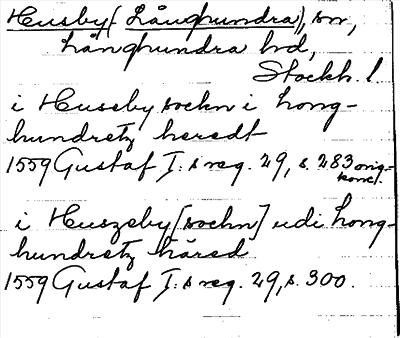 Husby (Långhundra), sn,
Långhundra hd,
Stockh. l.
i Huseby sochn i Long-
hundretz heredt
1559 Gustaf I:s reg. 29, s. 283 orig.-
konc.
i Huszeby [sochn] udi Long-
hundretz härad
1559 Gustaf I:s reg. 29, s. 300.